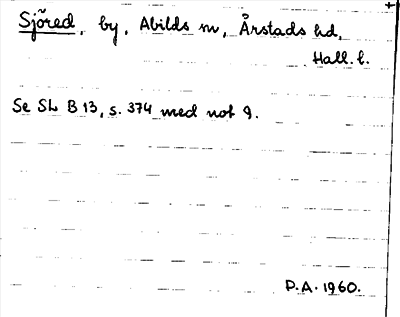 Sjöred, by, Abilds sn, Årstads hd,
Hall. l.
Se SL B 13, s. 374 med not 9.
P.A. 1960.